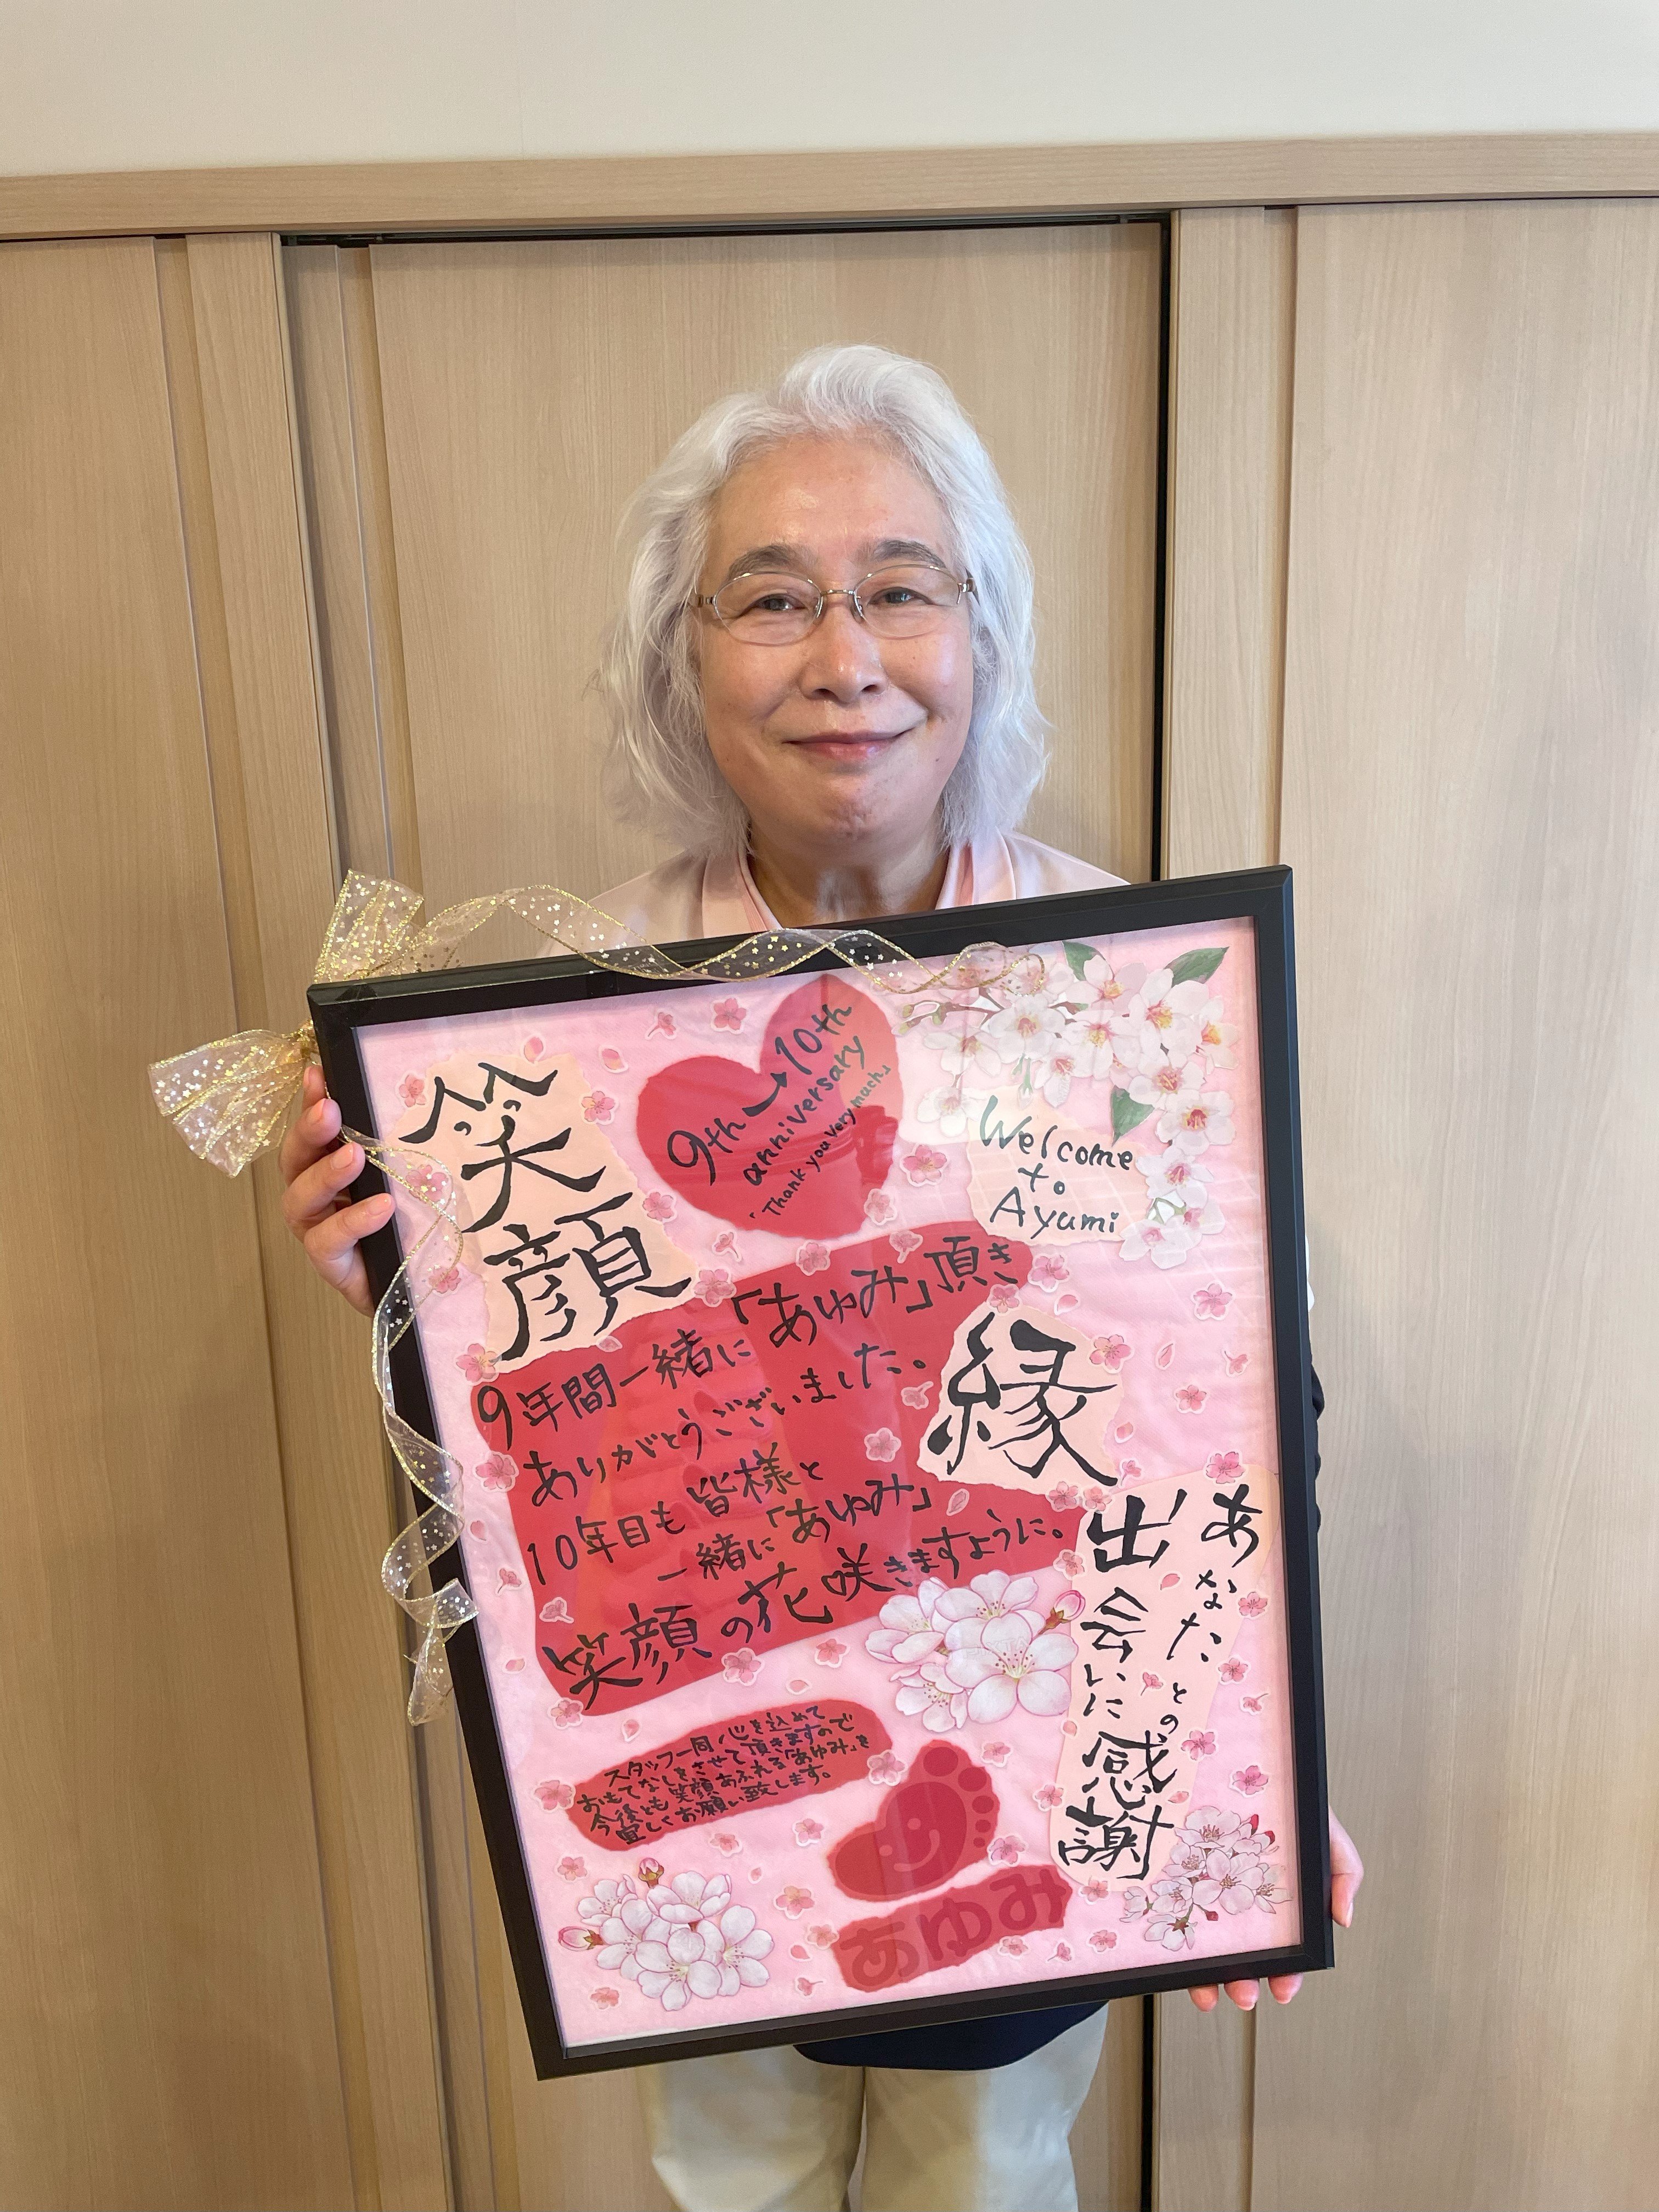 笑顔
9th→10th
anniversary
「Thank you very much」
Welcome
to
Ayumi
9年間一緒に「あゆみ」頂き
ありがとうございました。
10年目も皆様と
一緒に「あゆみ」
笑顔の花咲きますように。
縁
あなたとの
出会いに感謝
スタッフ一同心を込めて
おもてなしをさせて頂きますので
今後とも笑顔あふれる「あゆみ」を
宜しくお願い致します。
あゆみ